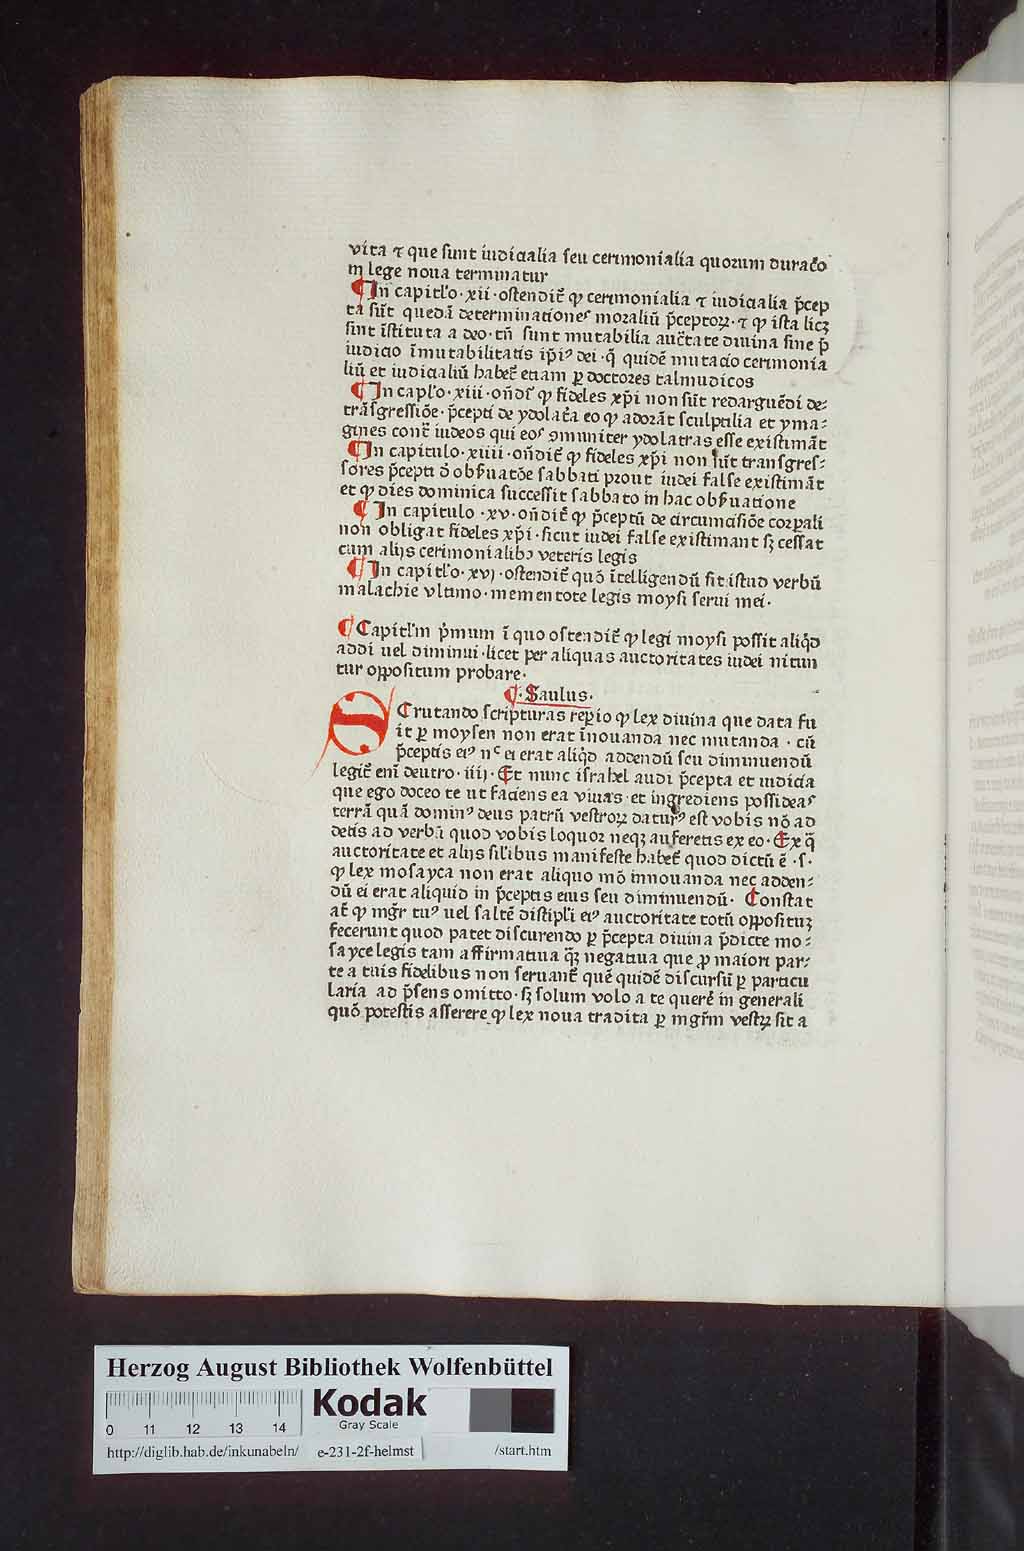 vita ⁊ que sunt iudicialia seu cerimonialia quorum duracõ
in lege noua terminatur
¶ In capitl'o · xii · ostendit̃ ꝙ cerimonialia ⁊ iudicialia p̃cep
ta sũt quedã determinationes moraliũ p̃ceptoꝝ · ⁊ ꝙ ista licꝫ
sint ĩstituta a deo · tñ sunt mutabilia auc̃tate diuina sine p̃
iudicio ĩmutabilitatis ip̃iꝰ dei · q̃ quidẽ mutacio cerimonia
liũ et iudicialiũ habet̃ etiam ꝑ doctores talmudicos
¶ In capl'o · xiii · oñdit̃ ꝙ fideles xp̃i non sũt redarguẽdi de⸗
trãsgressiõe · p̃cepti de ydolat̃a eo ꝙ adorãt sculptilia et yma⸗
gines cont̃ iudeos qui eos ꝯmuniter ydolatras esse existimãt
¶ In capitulo · xiiii · oñdit̃ ꝙ fideles xp̃i non sũt transgres⸗
sores p̃cepti õ obẜuatõe sabbati prout iudei false existimãt
et ꝙ dies dominica successit sabbato in hac obẜuatione
¶ In capitulo · xv · oñdit̃ ꝙ p̃ceptũ de circumcisiõe corꝑali
non obligat fideles xp̃i · sicut iudei false existimant sꝫ cessat
cum alijs cerimonialibꝰ veteris legis
¶ In capitl'o · xvj · ostendit̃ quõ ĩtelligendũ sit istud verbũ
malachie vltimo · mementote legis moysi serui mei ·
¶ Capitl'm p̃mum ĩ quo ostendit̃ ꝙ legi moysi possit aliq̃d
addi uel diminui · licet per aliquas auctoritates iudei nitun
tur oppositum probare ·
¶ · Saulus ·
SCrutando scripturas rep̃io ꝙ lex diuina que data fu
it ꝑ moysen non erat ĩnouanda nec mutanda · cũ
p̃ceptis eiꝰ nᶜ ei erat aliq̃d addendũ seu diminuendũ
legit̃ enĩ deutro · iiij · Et nunc israhel audi p̃cepta et iudicia
que ego doceo te ut faciens ea viuas · et ingrediens possideas
terrã quã dominꝰ deus patrũ vestroꝝ daturꝰ est vobis nõ ad
detis ad verbũ quod vobis loquor neqꝫ auferetis ex eo · Ex q̃
auctoritate et alijs sil'ibus manifeste habet̃ quod dictũ ẽ · s ·
ꝙ lex mosayca non erat aliquo mõ innouanda nec adden⸗
dũ ei erat aliquid in p̃ceptis eius seu diminuendũ · Constat
at̃ ꝙ mg̃r tuꝰ uel saltẽ discipl'i eiꝰ auctoritate totũ oppositũ
fecerunt quod patet discurendo ꝑ p̃cepta diuina p̃dicte mo⸗
sayce legis tam affirmatiua q̃ꝫ negatiua que ꝓ maiori par⸗
te a tuis fidelibus non seruant̃ quẽ quidẽ discursũ ꝑ particu
laria ad p̃sens omitto · sꝫ solum volo a te querẽ in generali
quõ potestis asserere ꝙ lex noua tradita ꝑ mgr̃m vestꝝ sit a
Herzog August Bibliothek Wolfenbüttel
Kodak
Gray Scale
0 11 12 13 14
http://diglib.hab.de/inkunabeln/ e-231-2f-helmst /start.htm